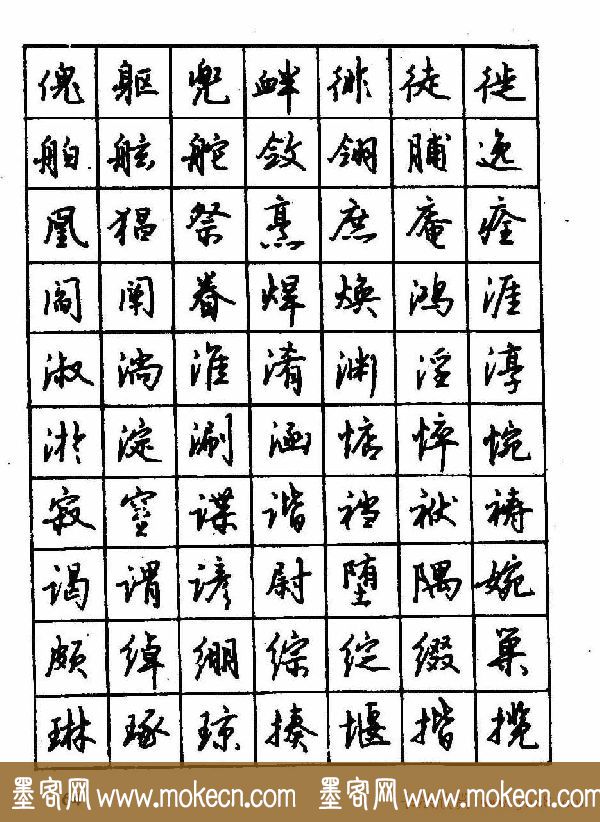 傀躯兜衅徘徒徙
舶舷舵敛翎脯逸
凰猖祭烹庶庵痊
阎阐眷焊焕鸿涯
淑淌淮淆渊淫淳
淤淀涮涵惦悴惋
寂窒谍谐裆袱祷
谒谓谚尉堕隅婉
颇绰绷综绽缀巢
琳琢琼揍堰揩揽
墨客网 www.mokecn.com 墨客网 www.mokecn.com